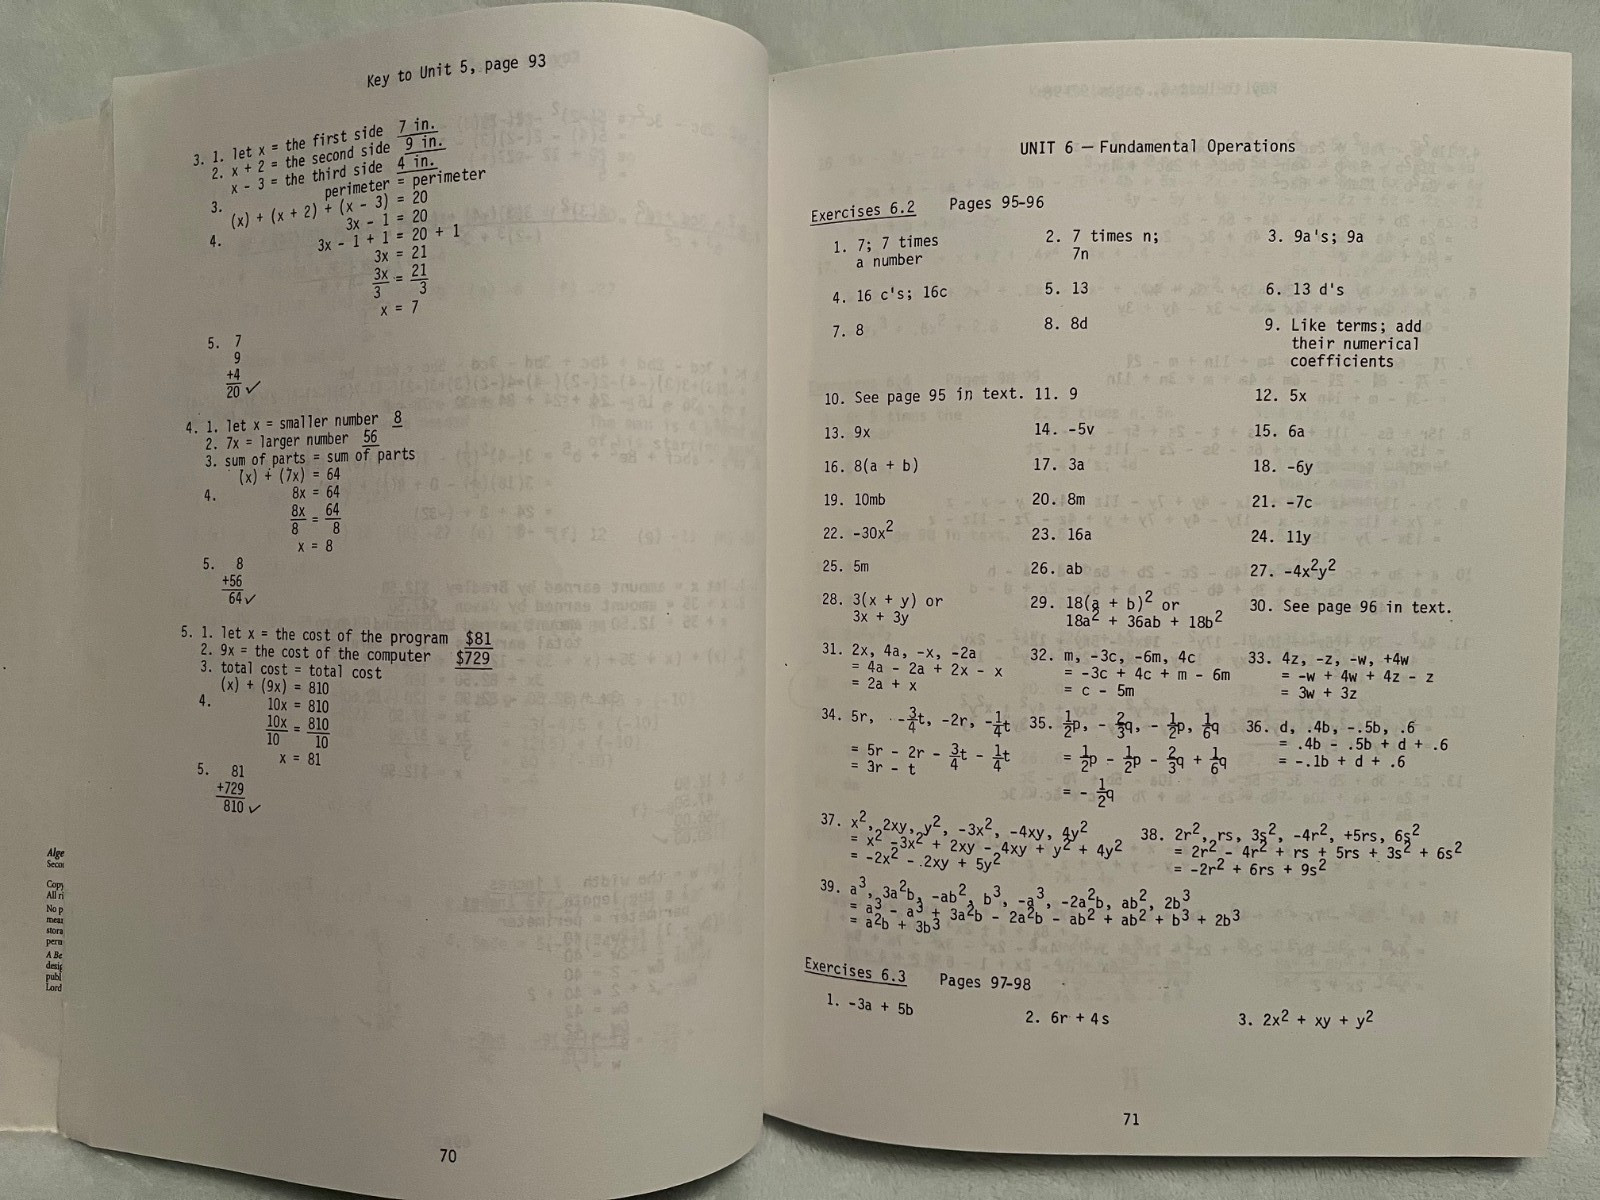 Key to Unit 5, page 93
3. 1. let x = the first side 7 in.
2. x + 2 = the second side 9 in.
x - 3 = the third side 4 in.
3. perimeter = perimeter
(x) + (x + 2) + (x - 3) = 20
4. 3x - 1 = 20
3x - 1 + 1 = 20 + 1
3x = 21
3x/3 = 21/3
x = 7
5. 7
9
+4
20 ✓
4. 1. let x = smaller number 8
2. 7x = larger number 56
3. sum of parts = sum of parts
(x) + (7x) = 64
4. 8x = 64
8x/8 = 64/8
x = 8
5. 8
+56
64 ✓
5. 1. let x = the cost of the program $81
2. 9x = the cost of the computer $729
3. total cost = total cost
(x) + (9x) = 810
4. 10x = 810
10x/10 = 810/10
x = 81
5. 81
+729
810 ✓
70
Alge
Secon
Copy
All ri
No p
mean
stora
perm
A Be
desig
publ
Lord
UNIT 6 — Fundamental Operations
Exercises 6.2 Pages 95-96
1. 7; 7 times a number
2. 7 times n; 7n
3. 9a's; 9a
4. 16 c's; 16c
5. 13
6. 13 d's
7. 8
8. 8d
9. Like terms; add
their numerical
coefficients
10. See page 95 in text. 11. 9 12. 5x
13. 9x 14. -5v 15. 6a
16. 8(a + b) 17. 3a 18. -6y
19. 10mb 20. 8m 21. -7c
22. -30x² 23. 16a 24. 11y
25. 5m 26. ab 27. -4x²y²
28. 3(x + y) or
3x + 3y
29. 18(a + b)² or
18a² + 36ab + 18b²
30. See page 96 in text.
31. 2x, 4a, -x, -2a
= 4a - 2a + 2x - x
= 2a + x
32. m, -3c, -6m, 4c
= -3c + 4c + m - 6m
= c - 5m
33. 4z, -z, -w, +4w
= -w + 4w + 4z - z
= 3w + 3z
34. 5r, -3/4t, -2r, -1/4t
= 5r - 2r - 3/4t - 1/4t
= 3r - t
35. 1/2p, - 2/3q, - 1/2p, 1/6q
= 1/2p - 1/2p - 2/3q + 1/6q
= - 1/2q
36. d, .4b, -.5b, .6
= .4b - .5b + d + .6
= -.1b + d + .6
37. x², 2xy, y², -3x², -4xy, 4y²
= x² -3x² + 2xy - 4xy + y² + 4y²
= -2x² - 2xy + 5y²
38. 2r², rs, 3s², -4r², +5rs, 6s²
= 2r² - 4r² + rs + 5rs + 3s² + 6s²
= -2r² + 6rs + 9s²
39. a³, 3a²b, -ab², b³, -a³, -2a²b, ab², 2b³
= a³ - a³ + 3a²b - 2a²b - ab² + ab² + b³ + 2b³
= a²b + 3b³
Exercises 6.3 Pages 97-98
1. -3a + 5b 2. 6r + 4s 3. 2x² + xy + y²
71